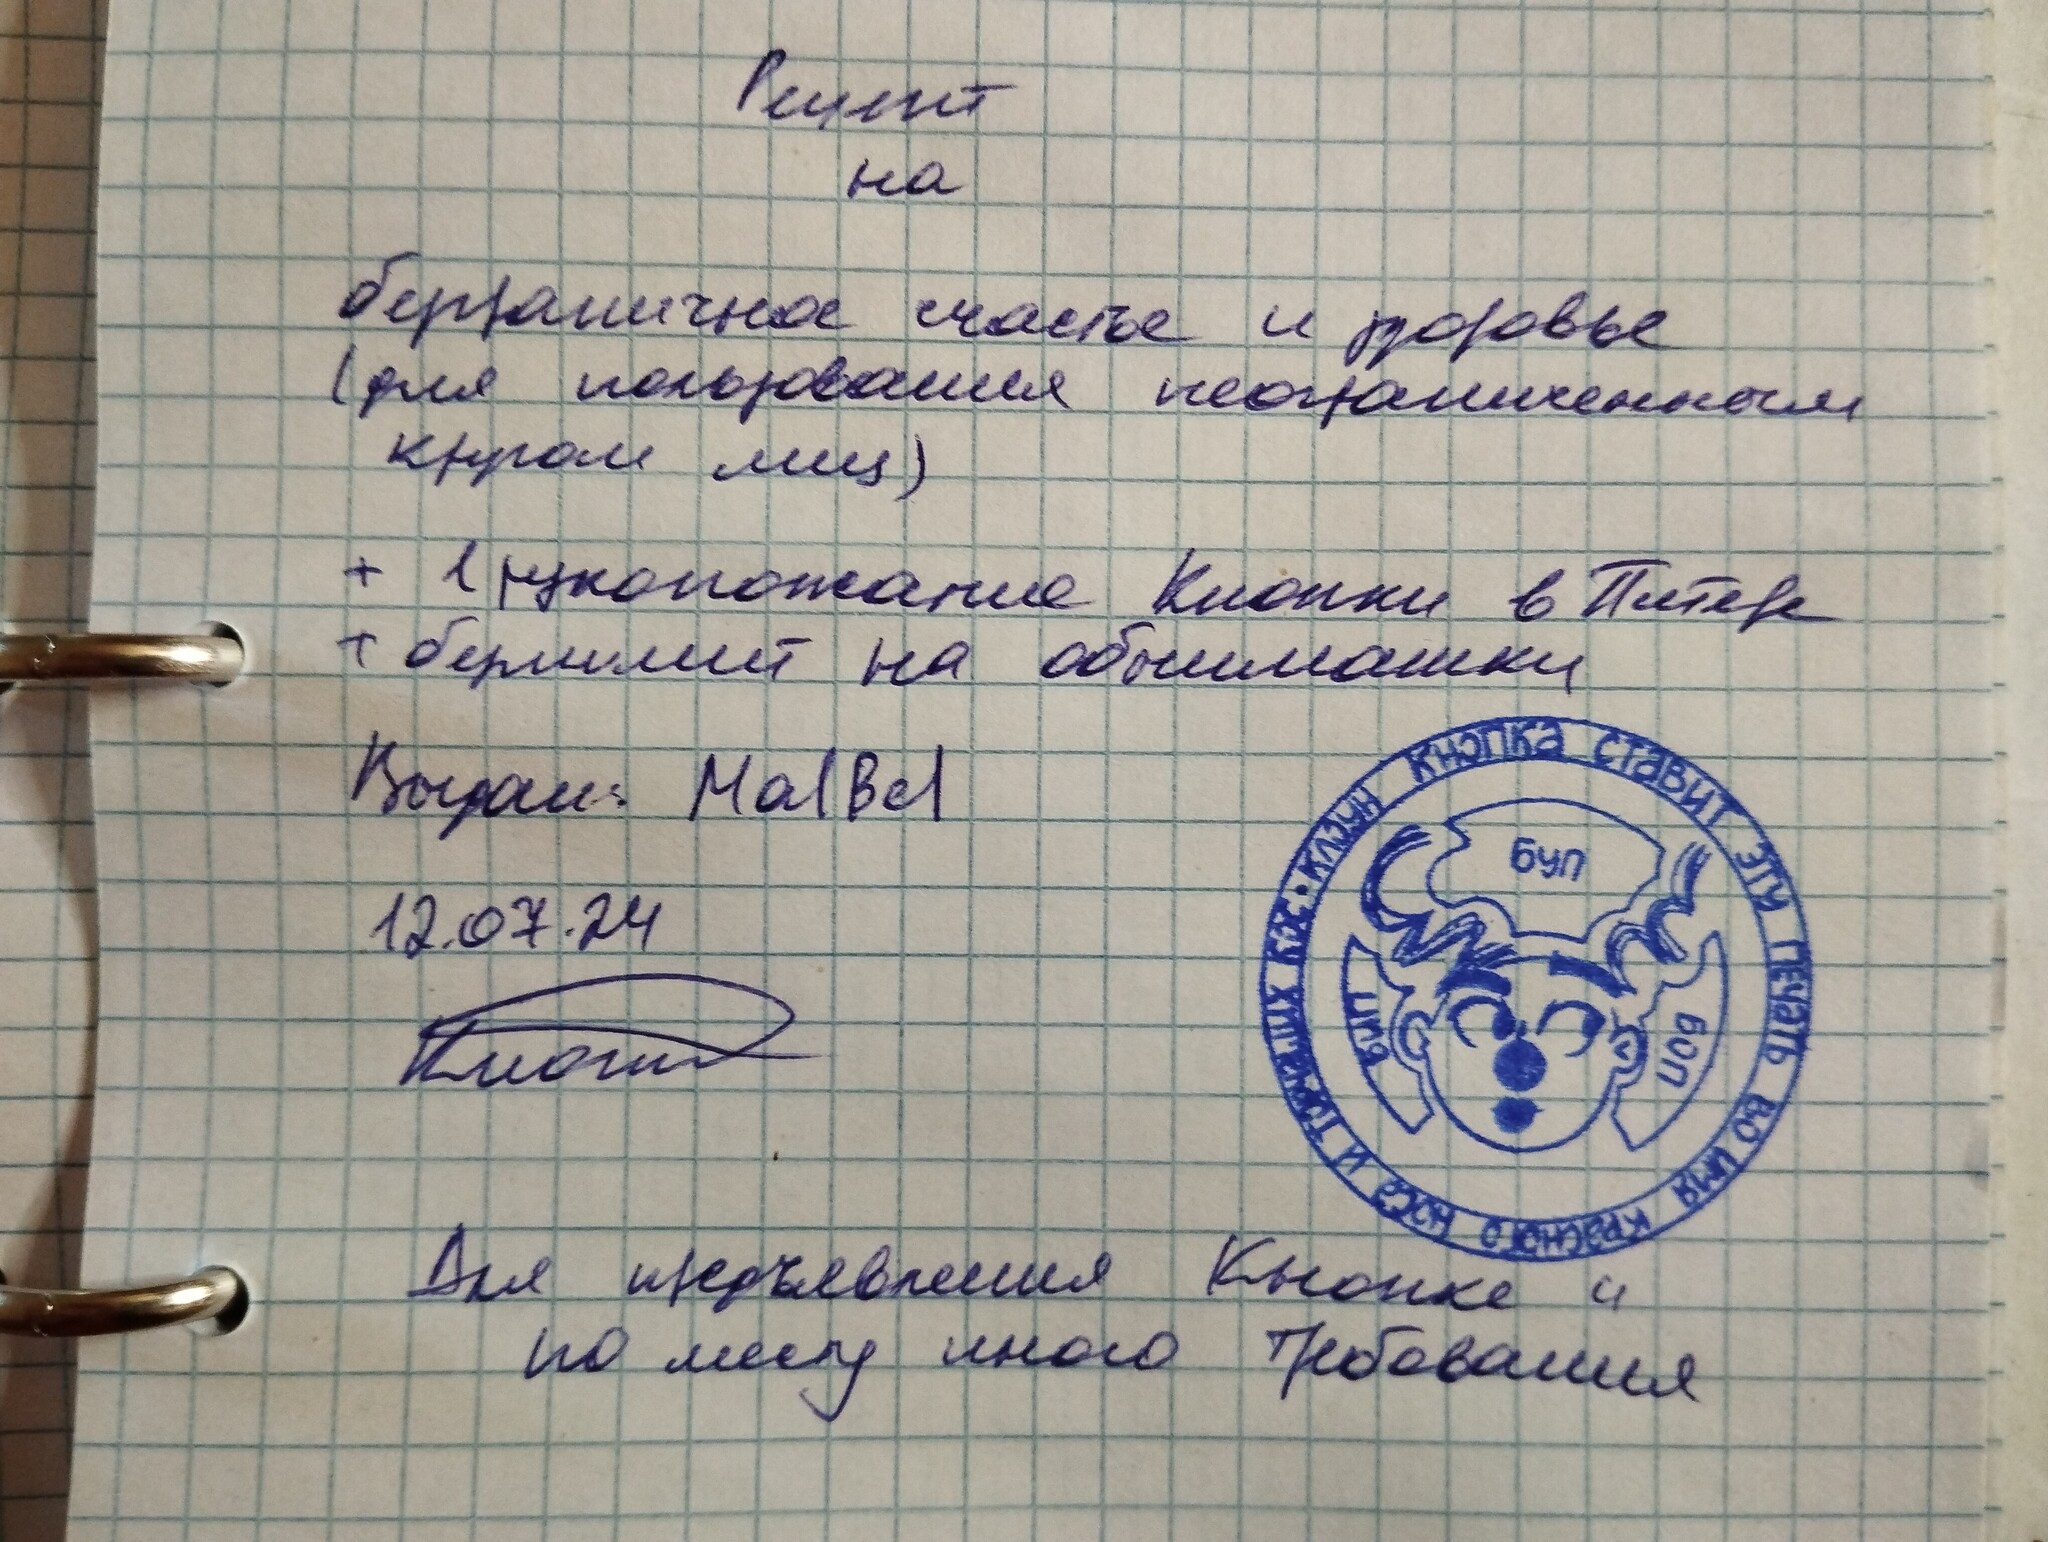 Рецепт
на
безграничное счастье и здоровье
(для пользования неограниченным
кругом лиц)
+ 1 рукопожатие Кнопки в Питере
+ безлимит на обнимашки
Выдан: MalBel
12.07.24
Кнопка
КЛОУН КНОПКА СТАВИТ ЭТУ ПЕЧАТЬ ВО ИМЯ КРАСНОГО НОСА И ТОРЧАЩИХ КОС •
БУП
БИП
БОП
Для предъявления Кнопке и
по месту иного требования